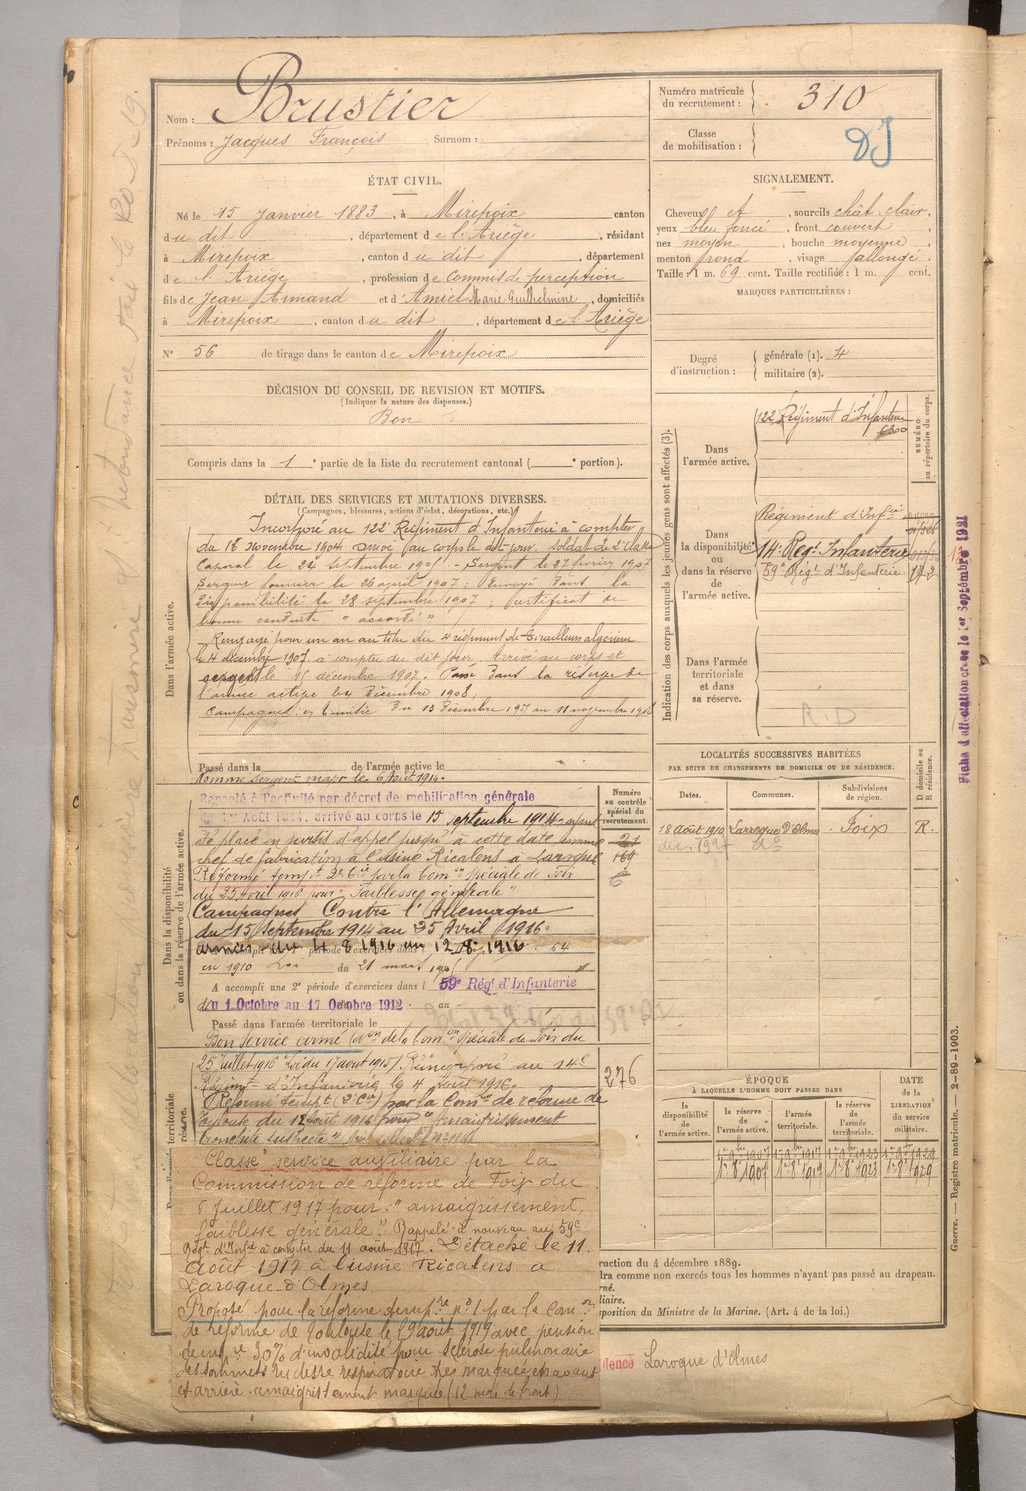 Nom : Brustier
Prénoms : Jacques François Surnom :
Numéro matricule du recrutement : 310
Classe de mobilisation :
DJ
ÉTAT CIVIL.
Né le 15 Janvier 1883, à Mirepoix canton
du dit, département de l'Ariège, résidant
à Mirepoix, canton du dit, département
de l'Ariège, profession de Commis de perception
fils de Jean Armand et d'Amiel Marie Guilhelmine, domiciliés
à Mirepoix, canton du dit, département de l'Ariège
N° 56 de tirage dans le canton de Mirepoix
SIGNALEMENT.
Cheveux et, sourcils chât. clair,
yeux bleu foncé, front couvert,
nez moyen, bouche moyenne,
menton rond, visage allongé.
Taille : 1 m. 69 cent. Taille rectifiée : 1 m. cent.
MARQUES PARTICULIÈRES :
Degré d'instruction : générale (1). 4
militaire (2).
DÉCISION DU CONSEIL DE REVISION ET MOTIFS.
(Indiquer la nature des dispenses.)
Bon
Compris dans la 1e partie de la liste du recrutement cantonal ( e portion).
DÉTAIL DES SERVICES ET MUTATIONS DIVERSES.
(Campagnes, blessures, actions d'éclat, décorations, etc.)
Dans l'armée active.
Incorporé au 122e Régiment d'Infanterie à compter
du 18 Novembre 1904 arrivé au corps le dit jour. Soldat de 2e Classe
Caporal le 24 Septembre 1905. - Sergent le 27 février 1907
Sergent fourrier le 26 avril 1907 ; Envoyé dans la
disponibilité le 28 septembre 1907 ; Certificat de
bonne conduite "accordé"
Rengagé pour un an au titre du 4 régiment de Tirailleurs algériens
le 4 décembre 1907 à compter du dit jour. Arrivé au corps et
sergent le 15 décembre 1907. Passé dans la réserve de
l'armée active le 4 Décembre 1908.
Campagnes : en Tunisie Du 13 Décembre 1907 au 11 novembre 1908
Passé dans la de l'armée active le
Nommé Sergent major le 6 Août 1914.
Dans la disponibilité ou dans la réserve de l'armée active.
Rappelé à l'activité par décret de mobilisation générale
du 1er Août 1914, arrivé au corps le 15 septembre 1914 ayant
été placé en sursis d'appel jusqu'à cette date comme
chef de fabrication à l'usine Ricalens à Laroque
Réformé tempre 2e Cie par la Comon Spéciale de Foix
du 25 Avril 1916 pour "Faiblesse générale"
Campagnes Contre l'Allemagne
du 15 Septembre 1914 au 25 Avril 1916.
du 4 8 1916 au 12 8 1916.
en 1910 Loi du 21 mars
A accompli une 2e période d'exercices dans l 59e Régt d'Infanterie
du 1 Octobre au 17 Octobre 1912 au
Passé dans l'armée territoriale le
Bon service armé (Don de la Comon Spéciale de Foix du
25 juillet 1916 Loi du 17 août 1915) Réincorporé au 14e
Régiment d'Infanterie le 4 Août 1916.
Réformé tempre (2e Cie) par la Comon de réforme de
Toulouse du 12 Août 1916 pour "Amaigrissement
bronchite suspecte"
"Classé" service auxiliaire par la
Commission de réforme de Foix du
6 juillet 1917 pour : "amaigrissement,
faiblesse générale". Rappelé à nouveau au 59e
Régt d'Infie à compter du 11 août 1917. Détaché le 11
août 1917 à l'usine Ricalens à
Laroque-d'Olmes
Proposé pour la réforme tempre n° 1 par la Comon
de réforme de Toulouse le 19 août 1919 avec pension
tempre 30% d'invalidité pour sclérose pulmonaire
des sommets rudesse respiratoire très marquée en avant
et arrière. amaigrissement marqué (12 mois de front)
Indication des corps auxquels les jeunes gens sont affectés (3).
NUMÉRO au répertoire du corps.
Dans l'armée active.
122e Régiment d'Infanterie
Dans la disponibilité ou dans la réserve de l'armée active.
Régiment d'Infie
14e Régt Infanterie
59e Régt d'Infanterie
Dans l'armée territoriale et dans sa réserve.
R.D
Fiche d'affectation créée le 1er Septembre 1921
LOCALITÉS SUCCESSIVES HABITÉES
PAR SUITE DE CHANGEMENTS DE DOMICILE OU DE RÉSIDENCE.
Dates. Communes. Subdivisions de région. D domicile ou R résidence.
18 août 1910 Larroque D'Olmes Foix R.
Numéro au contrôle spécial du recrutement.
169
276
ÉPOQUE
À LAQUELLE L'HOMME DOIT PASSER DANS
la disponibilité de l'armée active. la réserve de l'armée active. l'armée territoriale. la réserve de l'armée territoriale.
DATE de la LIBÉRATION du service militaire.
ruction du 4 décembre 1889.
dra comme non exercés tous les hommes n'ayant pas passé au drapeau.
rné.
iliaire.
sposition du Ministre de la Marine. (Art. 4 de la loi.)
idence Laroque d'Olmes
Guerre. — Registre matricule. — 2-89-1903.